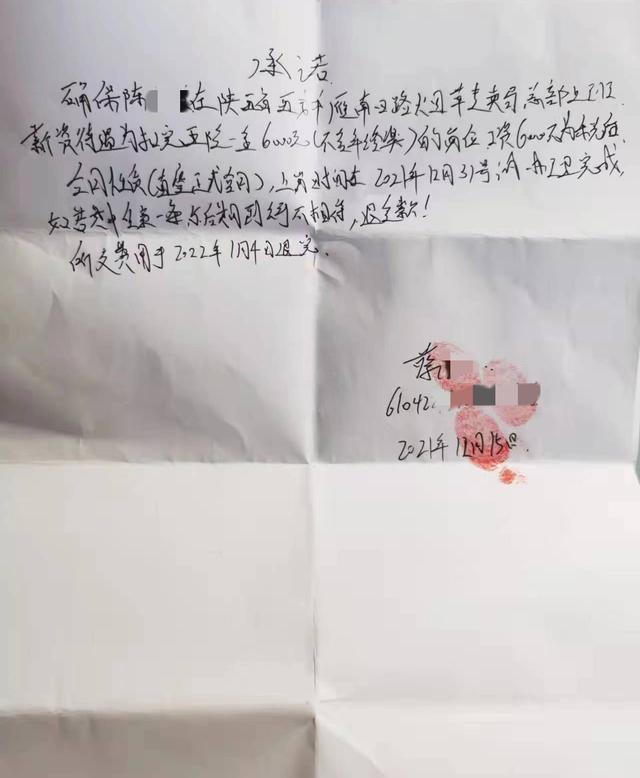 承诺
确保陈 在陕西省西安市雁南四路火因草专卖局总部上班
薪资待遇为扣完五险一金6000元(不含年终奖)的岗位 工资6000元为
合同性质(直签正式合同),上岗时间在2021年12月31号前办理完成,
如若其中任意一条与后期到岗不相符,退全款!
所交费用于2022年1月4日退完.
蒋
61042
2021年12月15日.